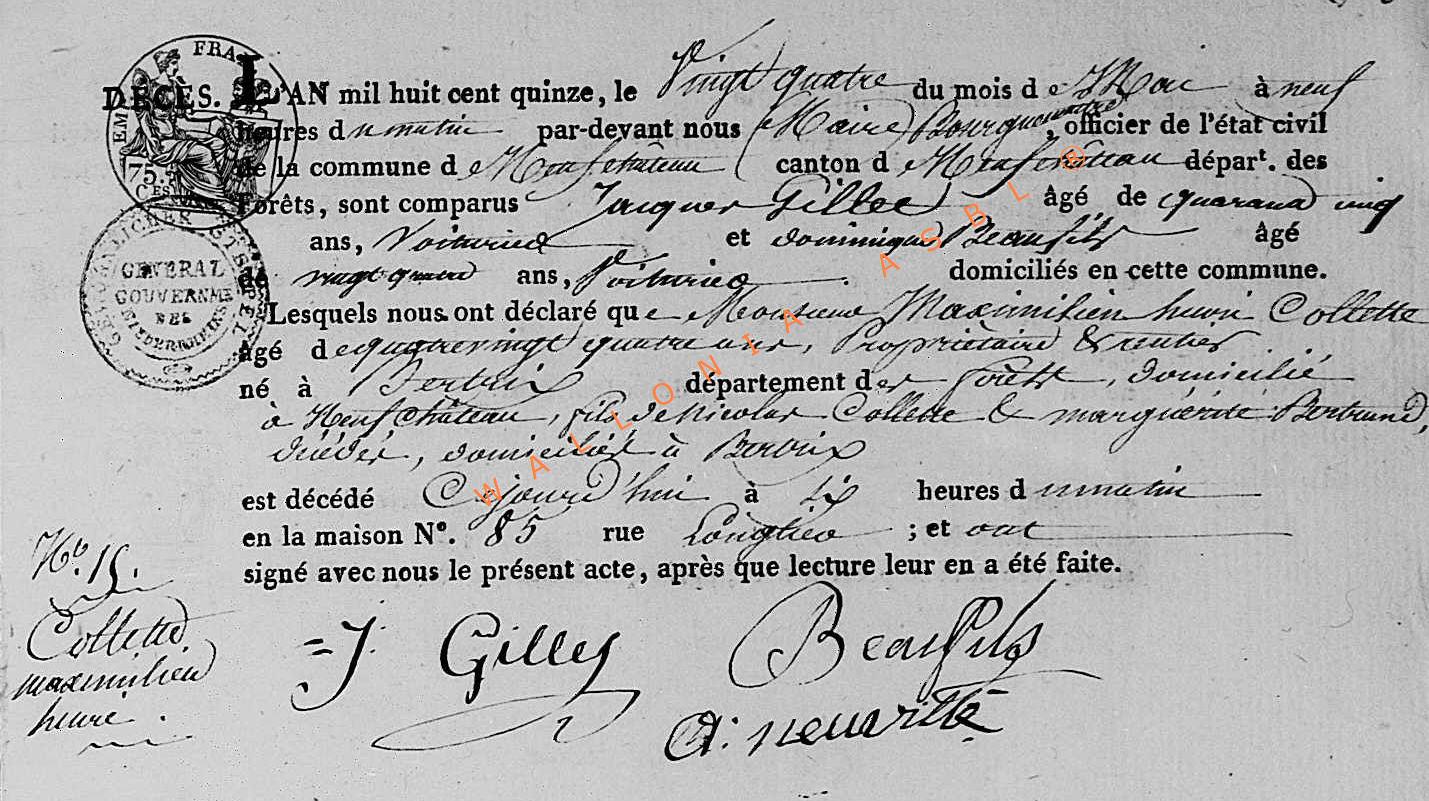 DÉCÈS. L'AN mil huit cent quinze, le Vingt quatre du mois de Mai à neuf
heures du matin par-devant nous (Maire) Bourguemaitre, officier de l'état civil
de la commune de Neufchâteau canton d Neufchâteau départ. des
Forêts, sont comparus Jacques Gilles âgé de quarante cinq
ans, Voiturier et dominique Beaufils âgé
de vingt quatre ans, Voiturier. domiciliés en cette commune.
Lesquels nous ont déclaré que Monsieur Maximilien henri Collette
âgé de quatrevingt quatre ans, Propriétaire & rentier
né à Bertrix département des forêts, domicilié
à Neufchâteau, fils de Nicolas Collette & marguerite Bertrand,
décédés, domiciliés à Bertrix
est décédé Cejourd'hui à six heures du matin
en la maison N°. 85 rue Longlier ; et ont
signé avec nous le présent acte, après que lecture leur en a été faite.
N° 15.
Collette
maximilien
henri.
J. Gilles
Beaufils
A: neuville
EMP FRA
75.
GENERAL
GOUVERNME
NIEDERRHEINS
WALLONIA ASBL ®